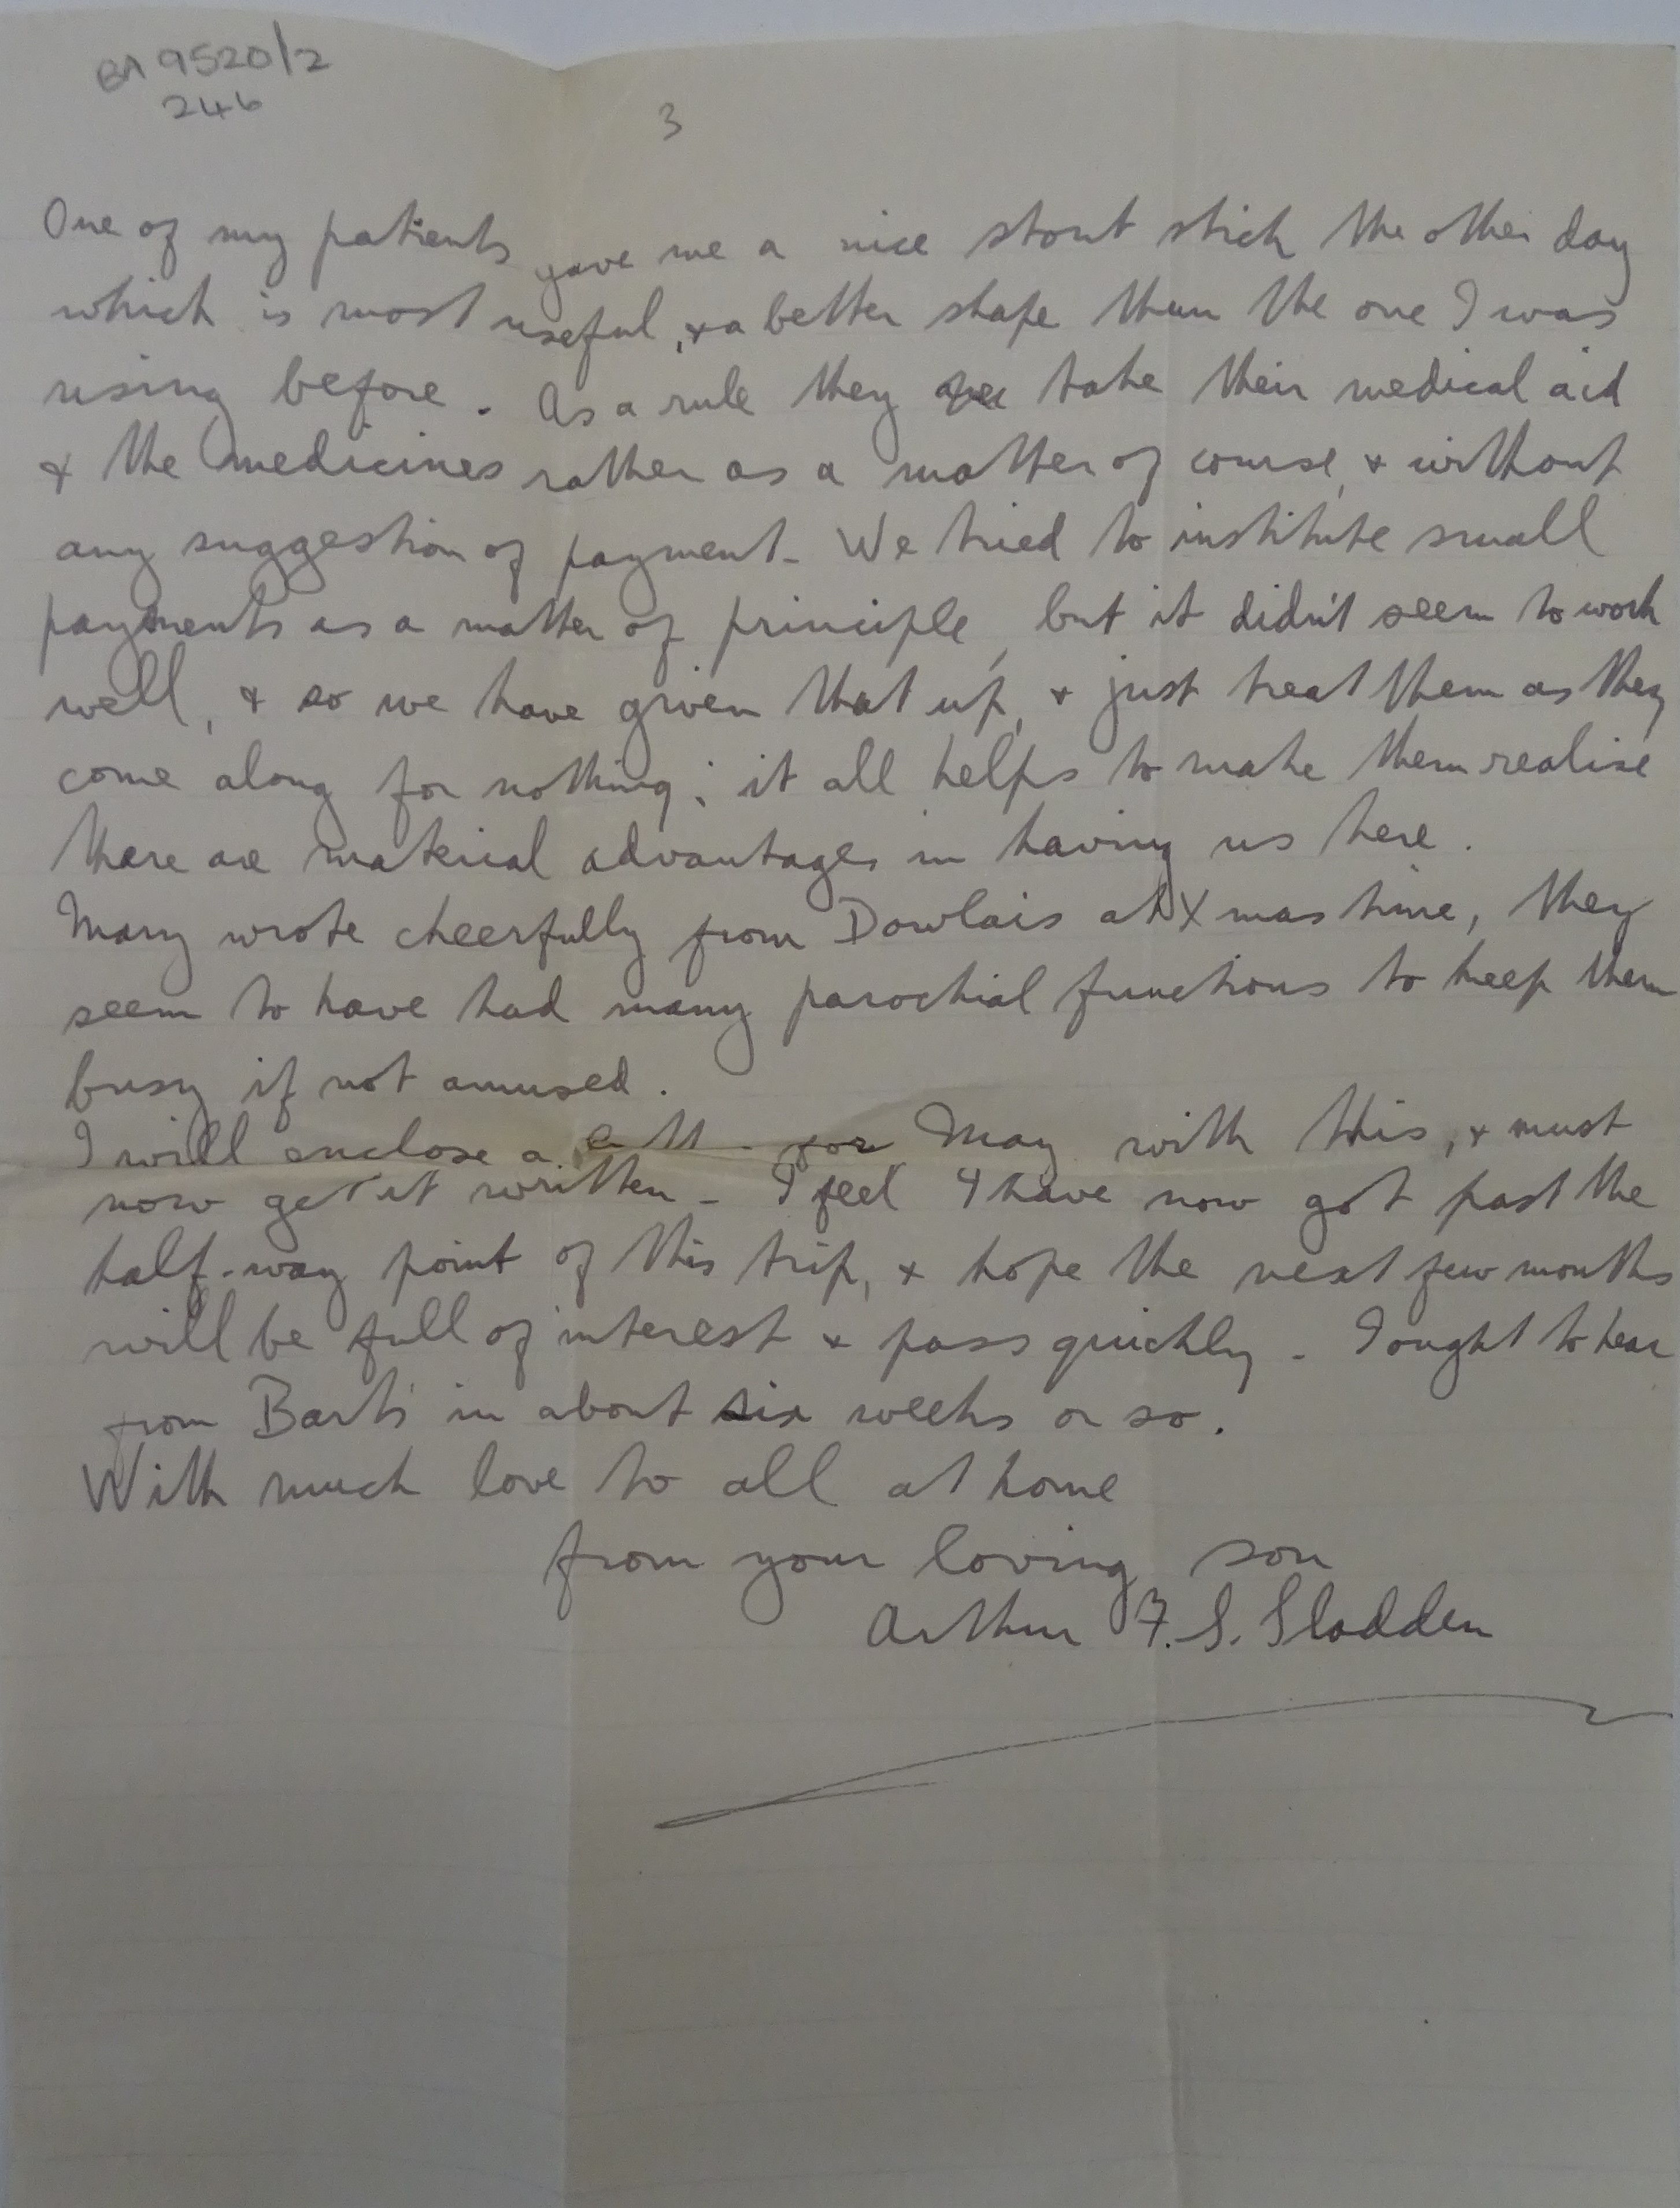 BA 9520/2
246
3
One of my patients gave me a nice stout stick the other day
which is most useful, & a better shape than the one I was
using before. As a rule they take their medical aid
& the medicines rather as a matter of course, & without
any suggestion of payment - We tried to institute small
payments as a matter of principle, but it didn't seem to work
well, & so we have given that up, & just treat them as they
come along for nothing; it all helps to make them realise
there are material advantages in having us here.
Mary wrote cheerfully from Dowlais at Xmas time, they
seem to have had many parochial functions to keep them
busy if not amused.
I will enclose a for May with this, & must
now get it written - I feel I have now got past the
half-way point of this trip, & hope the next few months
will be full of interest & pass quickly - I ought to hear
from Barts in about six weeks or so.
With much love to all at home
from your loving son
Arthur F. S. Sladden